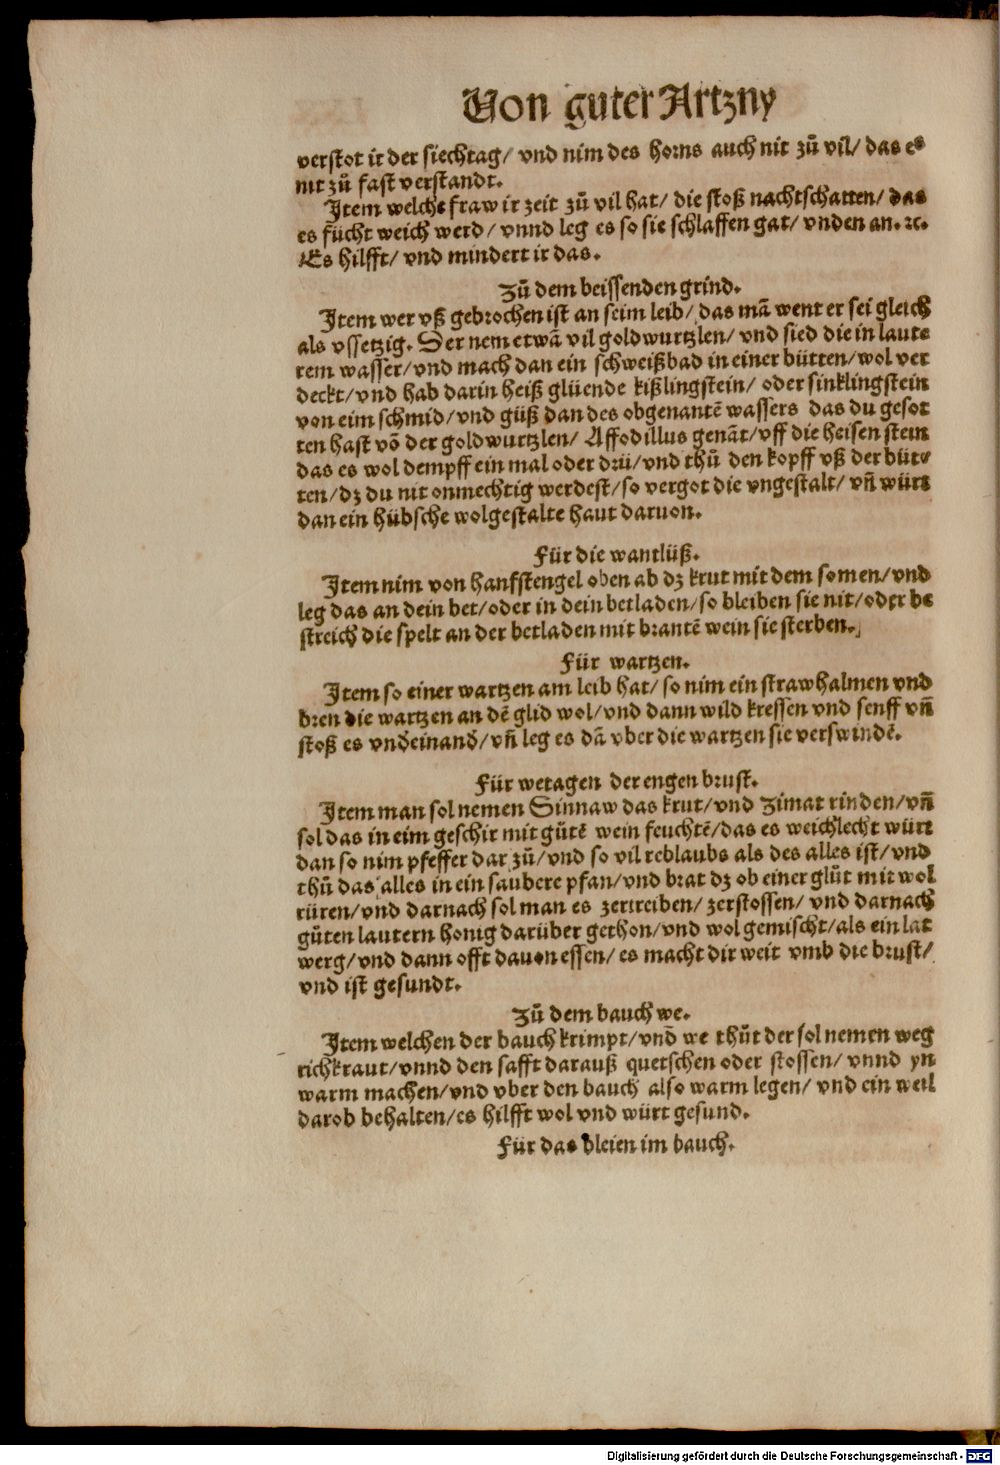 Von guter Artzny
verstot ir der siechtag/ vnd nim des horns auch nit zů vil/ das es
nit zů fast verstandt.
Item welche fraw ir zeit zů vil hat/ die stoß nachtschatten/ das
es fücht weich werd/ vnnd leg es so sie schlaffen gat/ vnden an. ꝛc.
Es hilfft/ vnd mindert ir das.
Zů dem beissenden grind.
Item wer vß gebrochen ist an seim leib/ das mā went er sei gleich
als vssetzig. Der nem etwā vil goldwurtzlen/ vnd sied die in laute
rem wasser/ vnd mach dan ein schweißbad in einer bütten/ wol ver
deckt/ vnd hab darin heiß glüende kißlingstein/ oder sinklingstein
von eim schmid/ vnd güß dan des obgenantē wassers das du gesot
ten hast vō der goldwurtzlen/ Affodillus genāt/ vff die heisen stein
das es wol dempff ein mal oder drü/ vnd thů den kopff vß der büt⸗
ten/ dz du nit onmechtig werdest/ so vergot die vngestalt/ vñ würt
dan ein hübsche wolgestalte haut daruon.
Für die wantlüß.
Item nim von hanfstengel oben ab dz krut mit dem somen/ vnd
leg das an dein bet/ oder in dein betladen/ so bleiben sie nit/ oder be
streich die spelt an der betladen mit brantē wein sie sterben.
Für wartzen.
Item so einer wartzen am leib hat/ so nim ein strawhalmen vnd
bren die wartzen an dē glid wol/ vnd dann wild kressen vnd senff vñ
stoß es vndeinand/ vñ leg es dā vber die wartzen sie verswindē.
Für wetagen der engen brust.
Item man sol nemen Sinnaw das krut/ vnd Zimat rinden/ vñ
sol das in eim geschir mit gůtē wein feuchtē/ das es weichlecht würt
dan so nim pfeffer dar zů/ vnd so vil reblaubs als des alles ist/ vnd
thů das alles in ein saubere pfan/ vnd brat dz ob einer glůt mit wol
rüren/ vnd darnach sol man es zertreiben/ zerstossen/ vnd darnach
gůten lautern honig darüber gethon/ vnd wol gemischt/ als ein lat
werg/ vnd dann offt dauon essen/ es macht dir weit vmb die brust/
vnd ist gesundt.
Zů dem bauch we.
Item welchen der bauch krimpt/ vnd we thůt der sol nemen weg
richkraut/ vnnd den safft darauß quetschen oder stossen/ vnnd yn
warm machen/ vnd vber den bauch also warm legen/ vnd ein weil
darob behalten/ es hilfft wol vnd würt gesund.
Für das bleien im bauch.
Digitalisierung gefördert durch die Deutsche Forschungsgemeinschaft - DFG